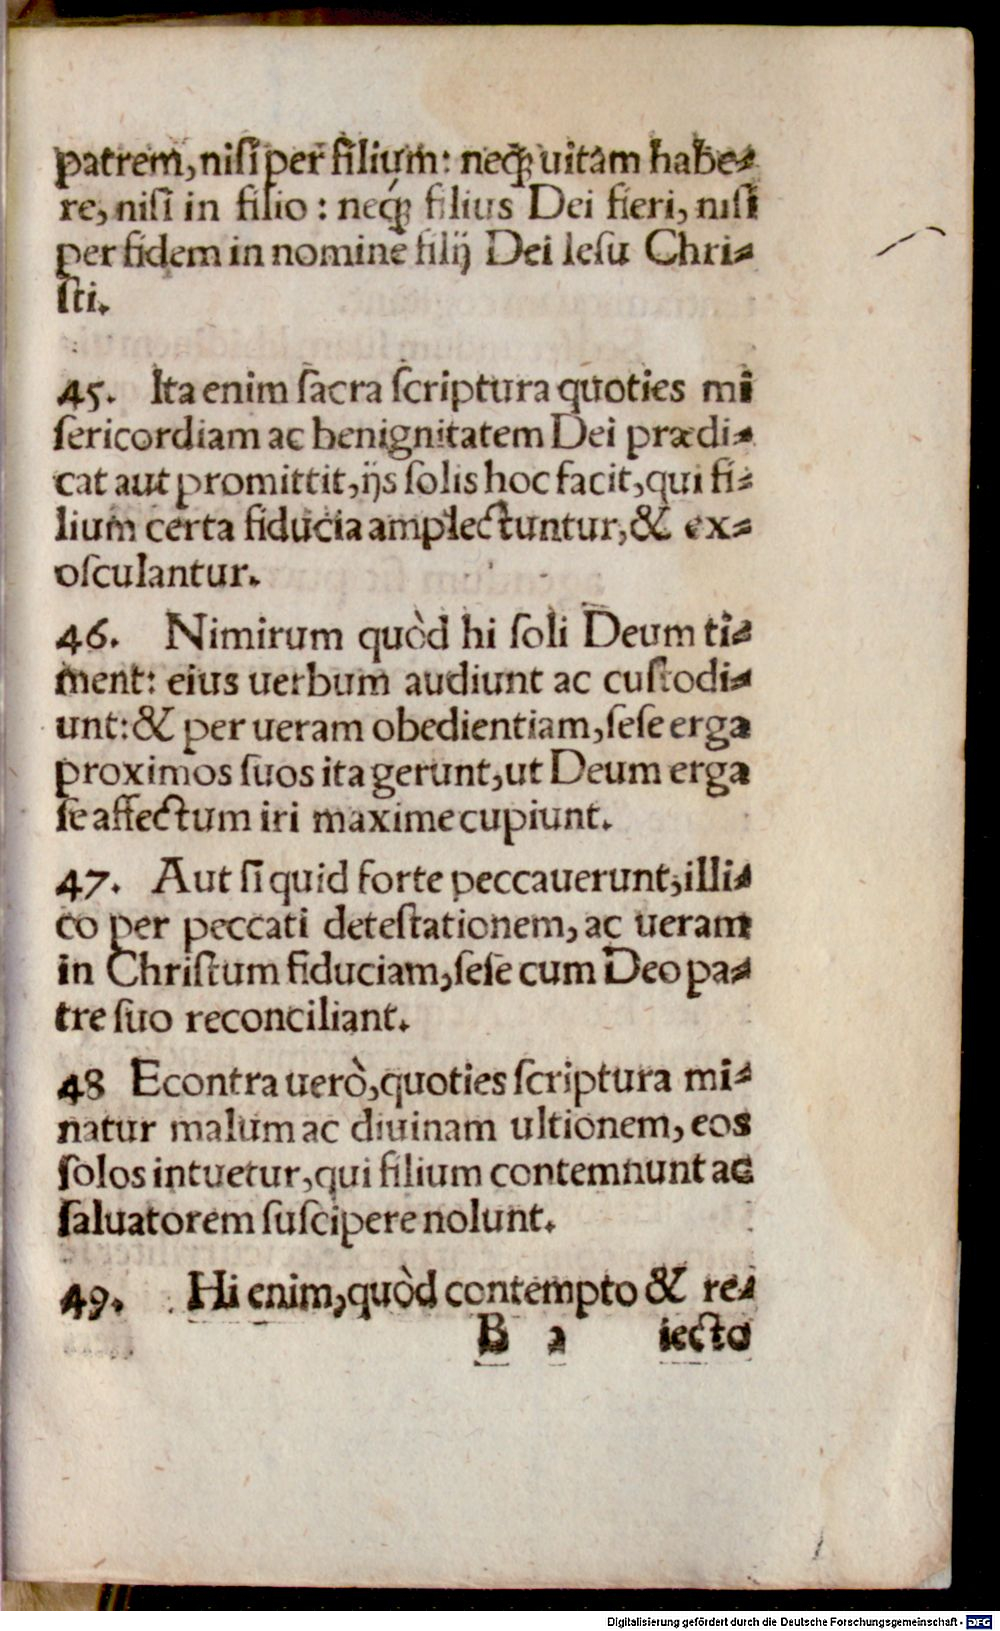 patrem, niſi per filium: neq́ꝫ uitam habe-
re, niſi in filio : neq́ꝫ filius Dei fieri, niſi
per fidem in nomine filij Dei Ieſu Chri-
ſti.
45. Ita enim ſacra ſcriptura quoties mi
ſericordiam ac benignitatem Dei prædi-
cat aut promittit, ijs ſolis hoc facit, qui fi-
lium certa fiducia amplectuntur, & ex-
oſculantur.
46. Nimirum quòd hi ſoli Deum ti-
ment: eius uerbum audiunt ac cuſtodi-
unt: & per ueram obedientiam, ſeſe erga
proximos ſuos ita gerunt, ut Deum erga
ſe affectum iri maxime cupiunt.
47. Aut ſi quid forte peccauerunt, illi-
co per peccati deteſtationem, ac ueram
in Chriſtum fiduciam, ſeſe cum Deo pa-
tre ſuo reconciliant.
48 Econtra uerò, quoties ſcriptura mi-
natur malum ac diuinam ultionem, eos
ſolos intuetur, qui filium contemnunt ac
ſaluatorem ſuſcipere nolunt.
49. Hi enim, quòd contempto & re-
B 2 iecto
Digitalisierung gefördert durch die Deutsche Forschungsgemeinschaft - DFG